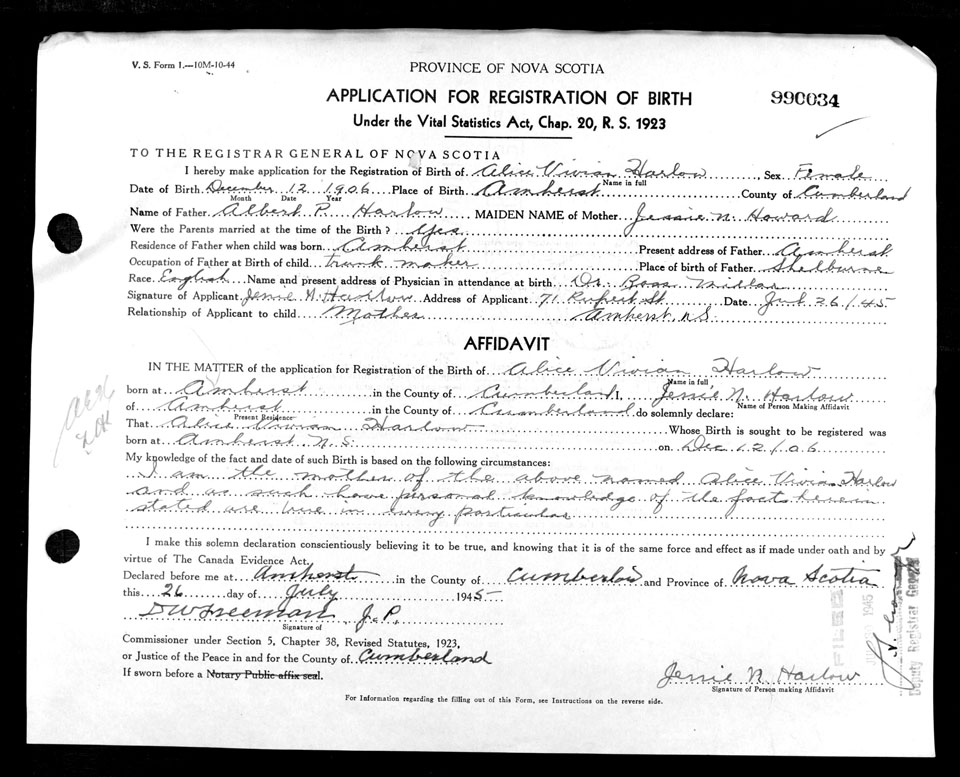 V. S. Form 1.—10M-10-44
PROVINCE OF NOVA SCOTIA
APPLICATION FOR REGISTRATION OF BIRTH
990034
Under the Vital Statistics Act, Chap. 20, R. S. 1923
TO THE REGISTRAR GENERAL OF NOVA SCOTIA
I hereby make application for the Registration of Birth of Alice Vivian Harlow, Sex Female
Name in full
Date of Birth December 12 1906 Place of Birth Amherst County of Cumberland
Month Date Year
Name of Father Albert P. Harlow MAIDEN NAME of Mother Jessie N. Howard
Were the Parents married at the time of the Birth? Yes
Residence of Father when child was born Amherst Present address of Father Amherst
Occupation of Father at Birth of child trunk maker Place of birth of Father Shelburne
Race English Name and present address of Physician in attendance at birth Dr. Ross Millar
Signature of Applicant Jessie N. Harlow Address of Applicant 71 Rupert St. Date July 26/45
Relationship of Applicant to child Mother Amherst, N.S.
AFFIDAVIT
IN THE MATTER of the application for Registration of the Birth of Alice Vivian Harlow
Name in full
born at Amherst in the County of Cumberland I, Jessie N. Harlow
Name of Person Making Affidavit
of Amherst in the County of Cumberland do solemnly declare:
Present Residence
That Alice Vivian Harlow Whose Birth is sought to be registered was
born at Amherst N.S. on Dec 12/06
My knowledge of the fact and date of such Birth is based on the following circumstances:
I am the mother of the above named Alice Vivian Harlow
and as such have personal knowledge of the facts herein
stated are true in every particular
I make this solemn declaration conscientiously believing it to be true, and knowing that it is of the same force and effect as if made under oath and by
virtue of The Canada Evidence Act.
Declared before me at Amherst in the County of Cumberland and Province of Nova Scotia
this 26 day of July 1945
DW Freeman J.P.
Signature of
Commissioner under Section 5, Chapter 38, Revised Statutes, 1923,
or Justice of the Peace in and for the County of Cumberland
If sworn before a Notary Public affix seal.
Jessie N Harlow
Signature of Person making Affidavit
For Information regarding the filling out of this Form, see Instructions on the reverse side.
FILED
1945
Deputy Registrar General